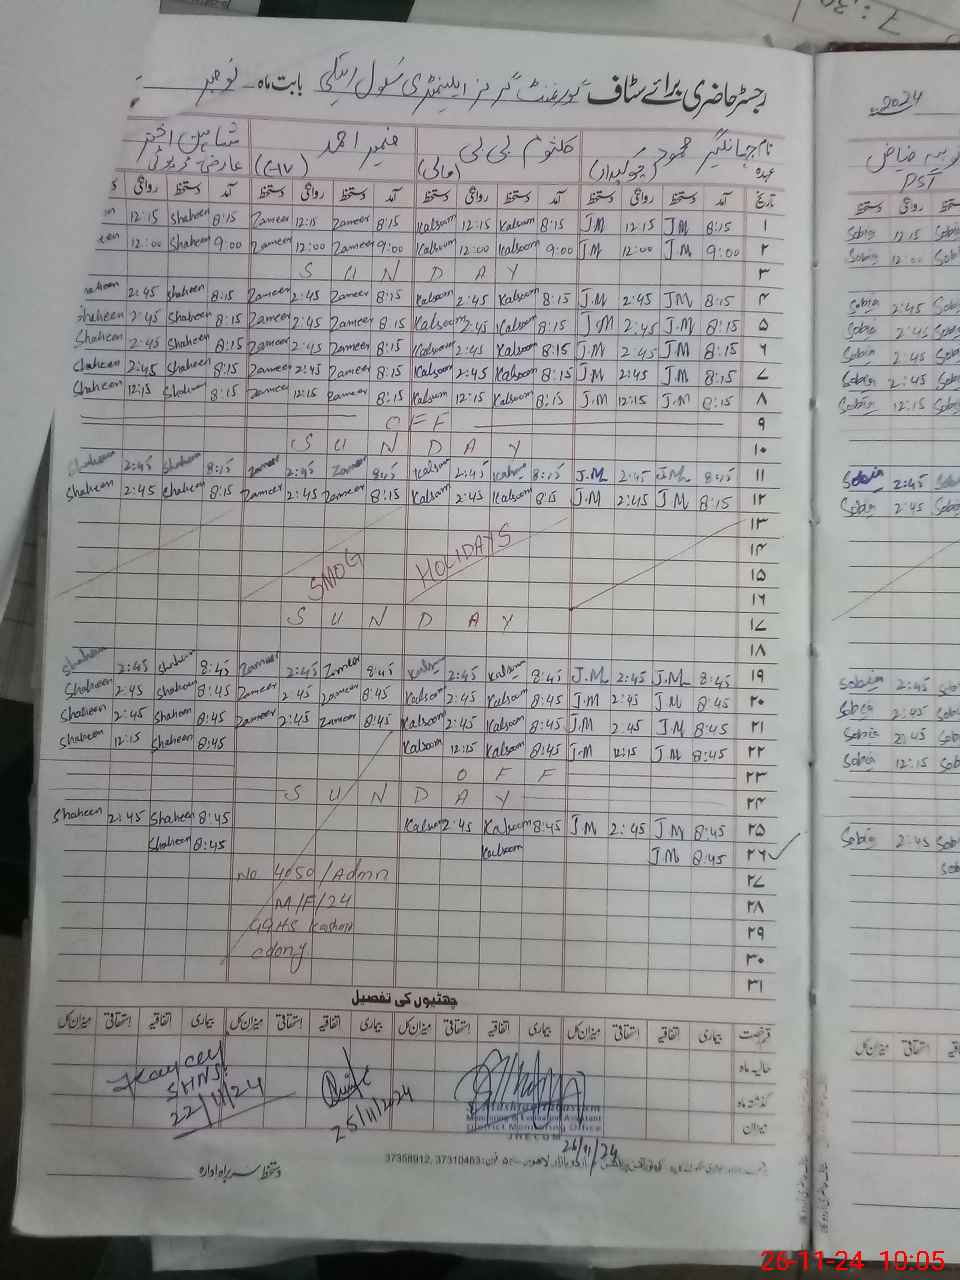 رجسٹر حاضری برائے سٹاف گورنمنٹ گرلز ایلیمنٹری سکول بابت ماہ نومبر 2024
نام جہانگیر محمود کلثوم بی بی ضمیر احمد شاہین اختر
عہدہ (چوکیدار) (مائی)
PST
تاریخ آمد دستخط روانگی دستخط آمد دستخط روانگی دستخط آمد دستخط روانگی دستخط آمد دستخط روانگی
۱ 8:15 JM 12:15 JM 8:15 Kalsoom 12:15 Kalsoom 8:15 Zameer 12:15 Zameer 8:15 Shaheen 12:15 Sobia 12:15
۲ 9:00 JM 12:00 JM 9:00 Kalsoom 12:00 Kalsoom 9:00 Zameer 12:00 Zameer 9:00 Shaheen 12:00 Sobia 12:00
۳ SUNDAY
۴ 8:15 JM 2:45 J.M 8:15 Kalsoom 2:45 Kalsoom 8:15 Zameer 2:45 Zameer 8:15 Shaheen 2:45 Shaheen Sobia 2:45
۵ 8:15 J.M 2:45 J.M 8:15 Kalsoom 2:45 Kalsoom 8:15 Zameer 2:45 Zameer 8:15 Shaheen 2:45 Shaheen Sobia 2:45
۶ 8:15 JM 2:45 J.M 8:15 Kalsoom 2:45 Kalsoom 8:15 Zameer 2:45 Zameer 8:15 Shaheen 2:45 Shaheen Sobia 2:45
۷ 8:15 J.M 2:45 J.M 8:15 Kalsoom 2:45 Kalsoom 8:15 Zameer 2:45 Zameer 8:15 Shaheen 2:45 Shaheen Sobia 2:45
۸ 8:15 J.M 12:15 J.M 8:15 Kalsoom 12:15 Kalsoom 8:15 Zameer 12:15 Zameer 8:15 Shaheen 12:15 Shaheen Sobia 12:15
۹ OFF
۱۰ SUNDAY
۱۱ 8:45 J.M 2:45 J.M 8:45 Kalsoom 2:45 Kalsoom 8:45 Zameer 2:45 Zameer 8:45 Shaheen 2:45 Shaheen Sobia 2:45
۱۲ 8:15 J.M 2:45 J.M 8:15 Kalsoom 2:45 Kalsoom 8:15 Zameer 2:45 Zameer 8:15 Shaheen 2:45 Shaheen Sobia 2:45
۱۳
۱۴
SMOG HOLIDAYS
۱۵
۱۶
۱۷ SUNDAY
۱۸
۱۹ 8:45 J.M 2:45 J.M 8:45 Kalsoom 2:45 Kalsoom 8:45 Zameer 2:45 Zameer 8:45 Shaheen 2:45 Shaheen Sobia 2:45
۲۰ 8:45 J.M 2:45 J.M 8:45 Kalsoom 2:45 Kalsoom 8:45 Zameer 2:45 Zameer 8:45 Shaheen 2:45 Shaheen Sobia 2:45
۲۱ 8:45 J.M 2:45 J.M 8:45 Kalsoom 2:45 Kalsoom 8:45 Zameer 2:45 Zameer 8:45 Shaheen 2:45 Shaheen Sobia 2:45
۲۲ 8:45 J.M 12:15 J.M 8:45 Kalsoom 12:15 Kalsoom 8:45 Shaheen 12:15 Shaheen Sobia 12:15
۲۳ OFF
۲۴ SUNDAY
۲۵ 8:45 JM 2:45 J.M 8:45 Kalsoom 2:45 Kalsoom 8:45 Shaheen 2:45 Shaheen Sobia 2:45
۲۶ 8:45 J.M Kalsoom 8:45 Shaheen
۲۷ No 4050/Admn
۲۸ M/F/24
۲۹ GGHS
۳۰
۳۱
چھٹیوں کی تفصیل
قسم رخصت بیماری اتفاقیہ استحقاقی میزان کل بیماری اتفاقیہ استحقاقی میزان کل بیماری اتفاقیہ استحقاقی میزان کل
حالیہ ماہ
گذشتہ ماہ
میزان
22/11/24
25/11/2024
Monitoring & Evaluation Assistant
District Monitoring Office
JHELUM
26/11/24
37358912, 37310463
دستخط سربراہ ادارہ
26-11-24 10:05